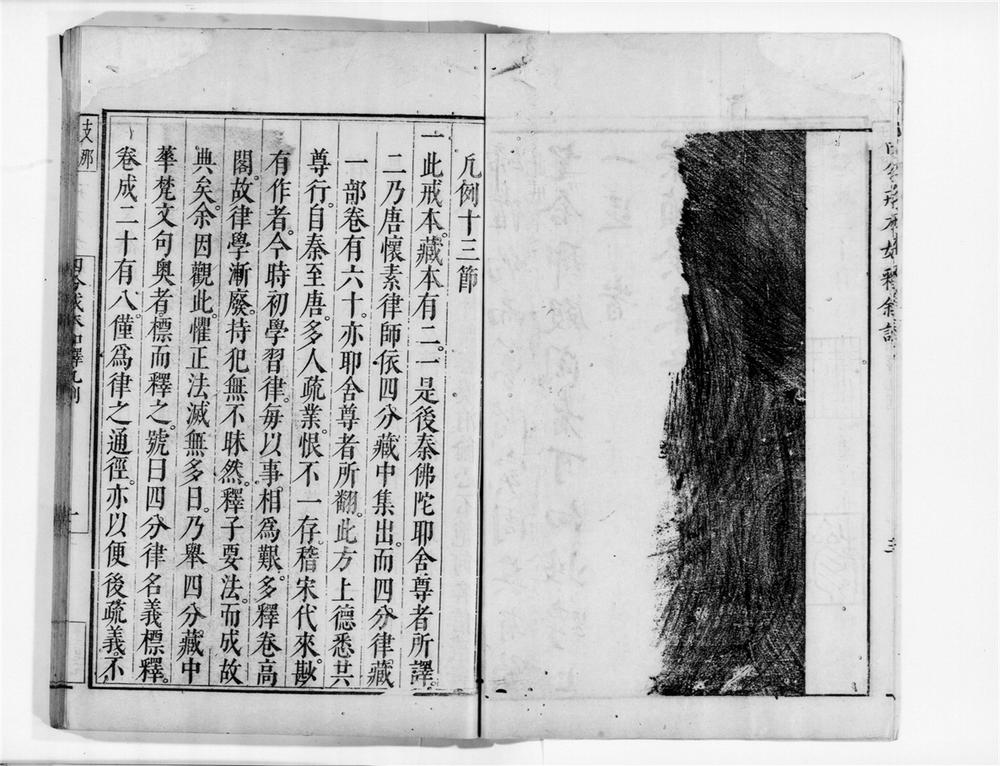 四分戒本如釋敘
凡例十三節
一此戒本。藏本有二。一是後秦佛陀耶舍尊者所譯。
二乃唐懷素律師依四分藏中集出。而四分律藏
一部卷有六十。亦耶舍尊者所翻。此方上德悉共
尊行。自秦至唐。多人疏業。恨不一存。稽宋代來。尠
有作者。今時初學習律。每以事相爲艱。多釋卷高
閣。故律學漸廢。持犯無不昧然。釋子要法。而成故
典矣。余因觀此。懼正法滅無多日。乃舉四分藏中
華梵文句奧者。標而釋之。號曰四分律名義標釋。
卷成二十有八。僅爲律之通徑。亦以便後疏義。不
支那
四分戒本如釋凡例
一